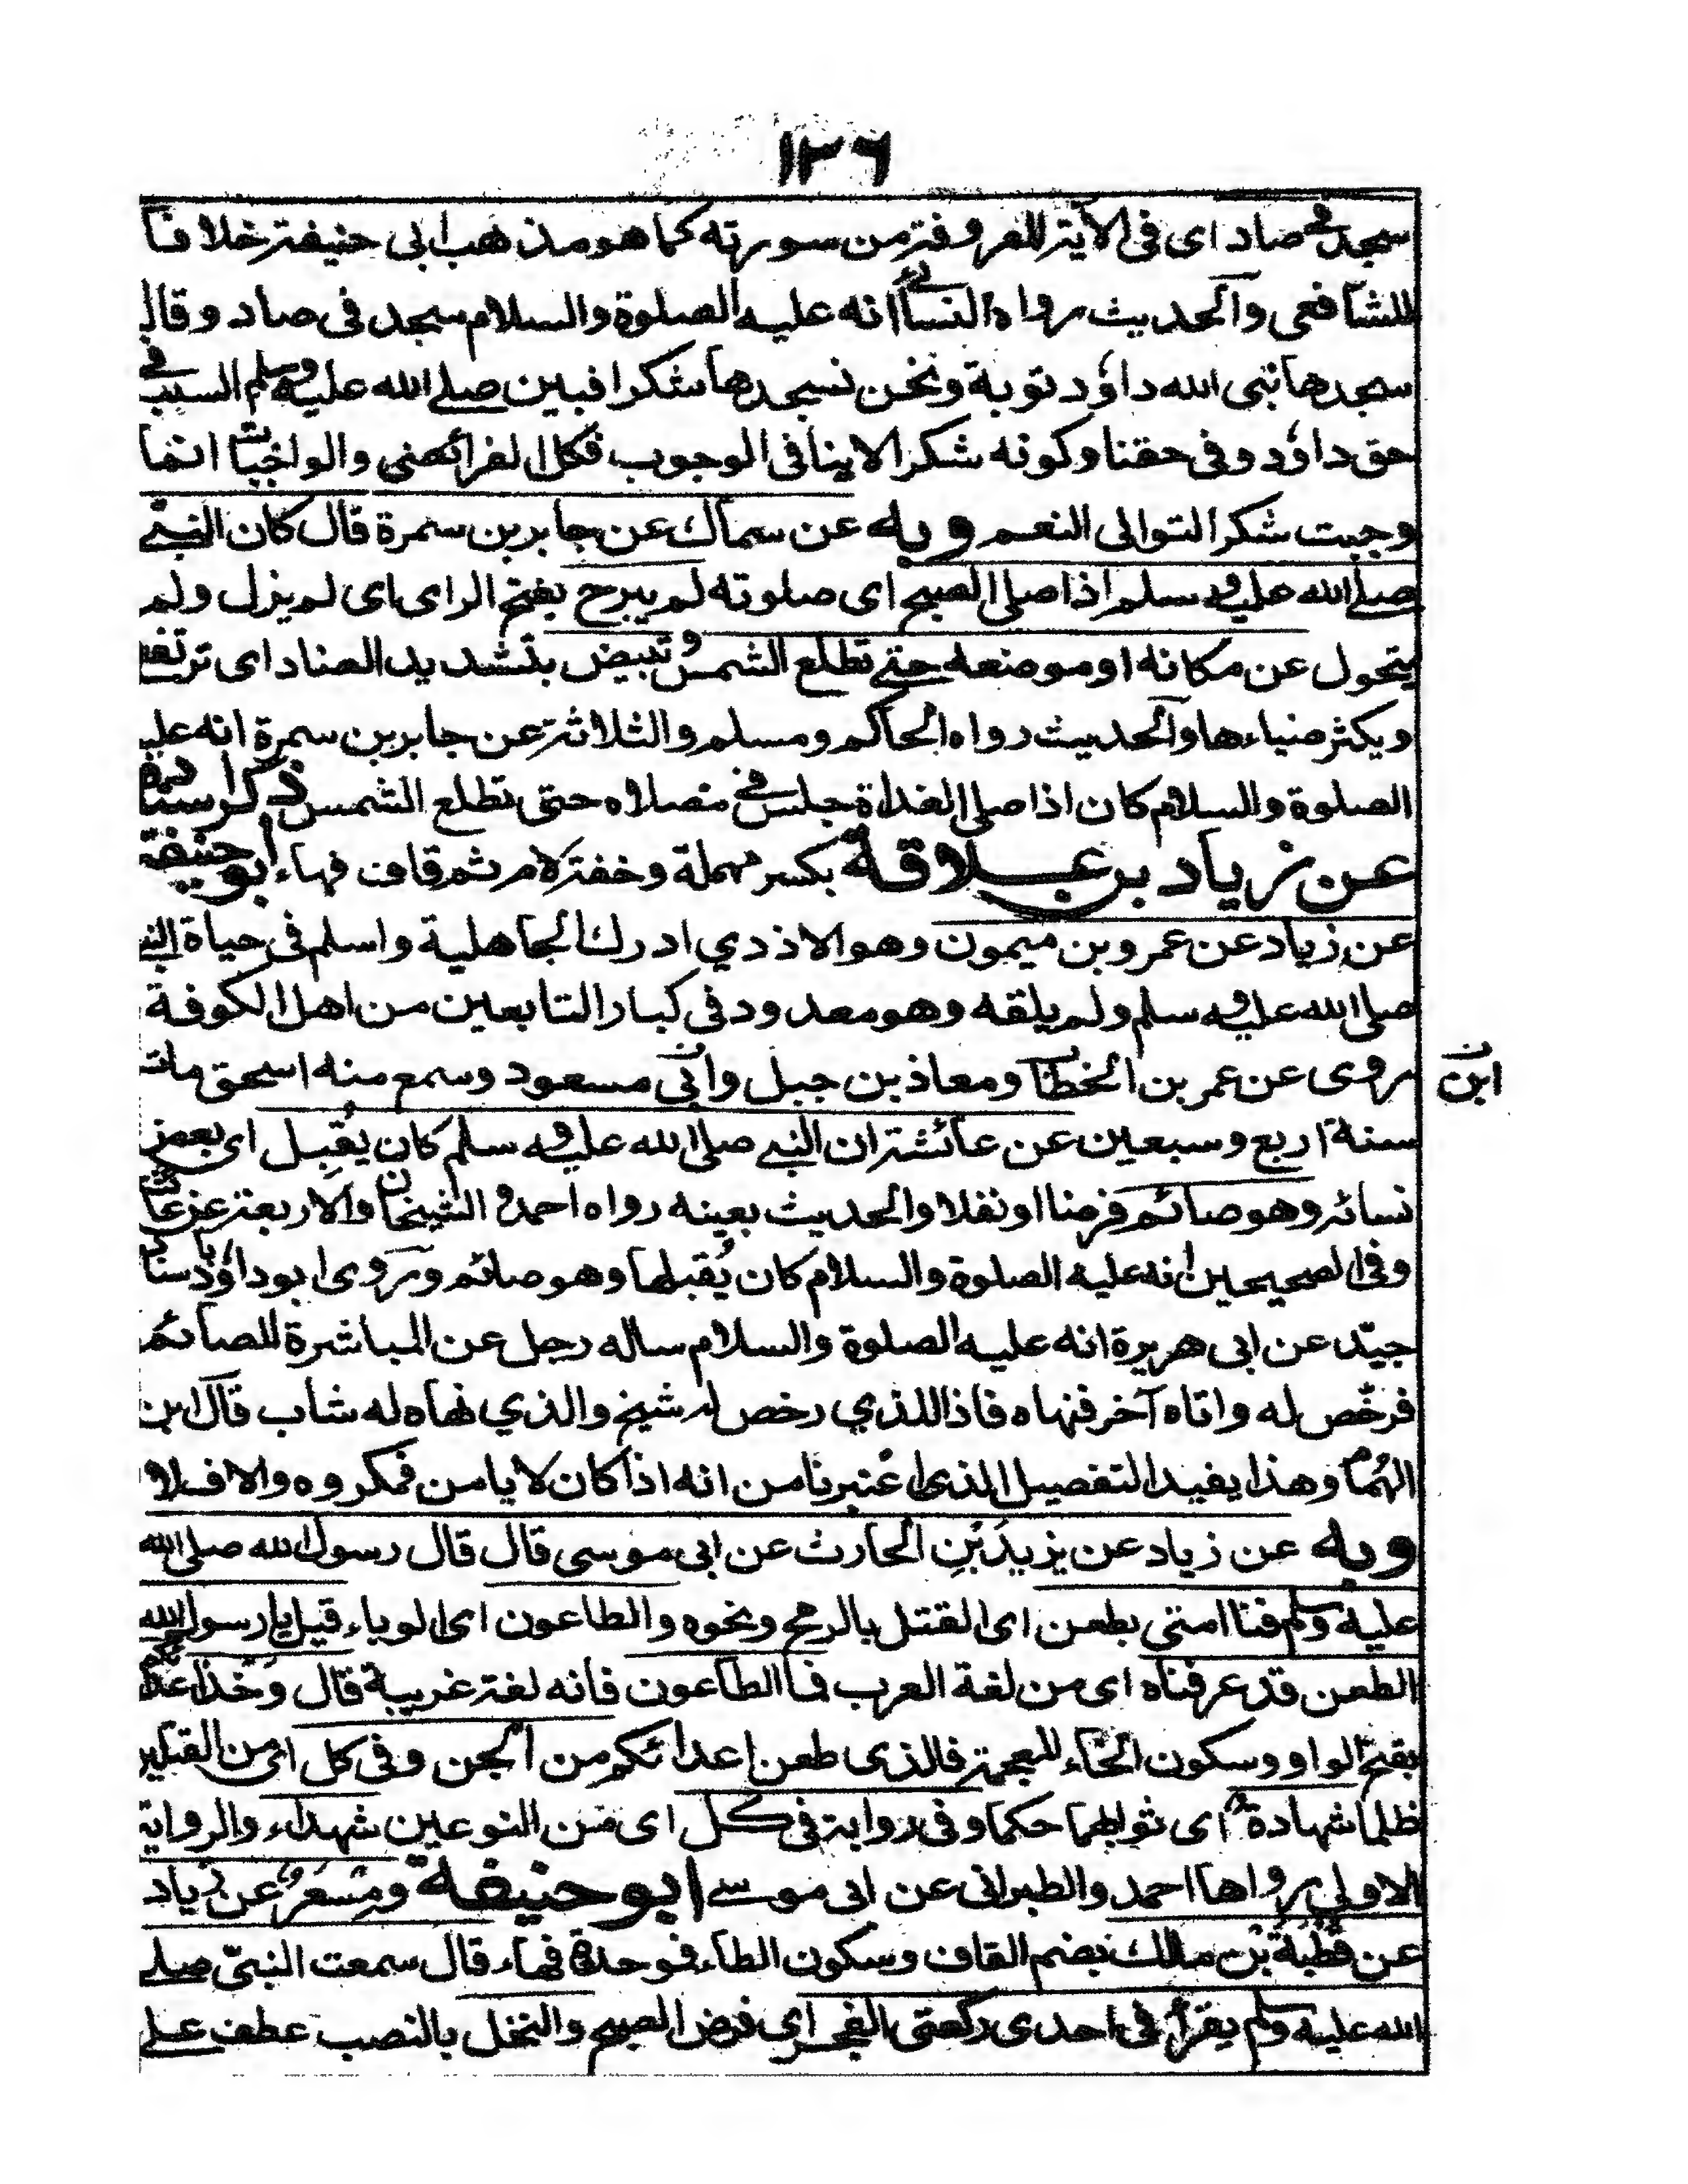 ١٣٦
سجد في صاد اى فى الآية المعروفة من سورته كما هو مذهب ابى حنيفة خلافا
للشافعى والحديث رواه النسائى انه عليه الصلوة والسلام سجد فى صاد وقال
سجدها نبى الله داؤد توبة ونحن نسجدها شكرا فبين صلى الله عليه وسلم السبب في
حق داؤد وفى حقنا وكونه شكرا لا ينافى الوجوب فكل الفرائض والواجبات انما
وجبت شكرا لتوالى النعم وبه عن سماك عن جابر بن سمرة قال كان النبي
صلى الله عليه وسلم اذا صلى الصبح اى صلوته لم يبرح بفتح الراى اى لم يزل ولم
يتحول عن مكانه او موضعه حتى تطلع الشمس وتبيض بتشديد الضاد اى ترتفع
ويكثر ضياءها والحديث رواه الحاكم ومسلم والثلاثة عن جابر بن سمرة انه عليه
الصلوة والسلام كان اذا صلى الغداة جلس في مصلاه حتى تطلع الشمس ذكر اسناده
عن زياد بن علاقة بكسر مهملة وخفة لام ثم قاف فهاء ابو حنيفة
عن زياد عن عمرو بن ميمون وهو الاذدي ادرك الجاهلية واسلم فى حياة النبي
صلى الله عليه وسلم ولم يلقه وهو معدود فى كبار التابعين من اهل الكوفة
روى عن عمر بن الخطاب ومعاذ بن جبل وابى مسعود وسمع منه اسحق مات
ابن
سنة اربع وسبعين عن عائشة ان النبي صلى الله عليه وسلم كان يقبل اى بعض
نسائه وهو صائم فرضا او نفلا والحديث بعينه رواه احمد و الشيخان والاربعة عن عائشة
وفى الصحيحين انه عليه الصلوة والسلام كان يُقبلها وهو صائم وروى ابو داؤد باسناد
جيّد عن ابى هريرة انه عليه الصلوة والسلام ساله رجل عن المباشرة للصائم
فرخّص له واتاه آخر فنهاه فاذا اللذي رخص له شيخ والذي نهاه له شاب قال ابن
الهُمام وهذا يفيد التفصيل الذى اعتبرنا من انه اذا كان لا يامن فمكروه والا فلا
وبه عن زياد عن يزيدَ بْنِ الحارث عن ابى موسى قال قال رسول الله صلى الله
عليه وسلم فنا امتى بطعن اى القتل بالرمح ونحوه والطاعون اى الوباء قيل يا رسول الله
الطعن قد عرفناه اى من لغة العرب فما الطاعون فانه لغة غريبة قال وَخْذ اعدائكم
بفتح الواو وسكون الخاء المعجمة فالذى طعن اعدائكم من الجن وفى كل اى من القتلين
ظلما شهادة اى ثوابهما حكما وفى رواية فى كل اى من النوعين شهداء والرواية
الاولى رواها احمد والطبرانى عن ابى موسى ابو حنيفة ومِسْعَر عن زياد
عن قُطْبَةَ بْن مالك بضم القاف وسكون الطاء فوحدة فهاء قال سمعت النبىّ صلى
الله عليه وسلم يقرأ فى احدى ركعتى الفجر اى فرض الصبح والنخل بالنصب عطف على